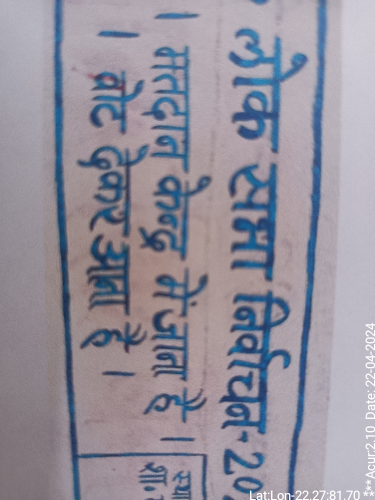 लोक सभा निर्वाचन-20
। मतदान केन्द्र में जाना है ।
। वोट देकर आना है ।
Lat:Lon-22.27:81.70
**Acur:2.10 Date: 22-04-2024